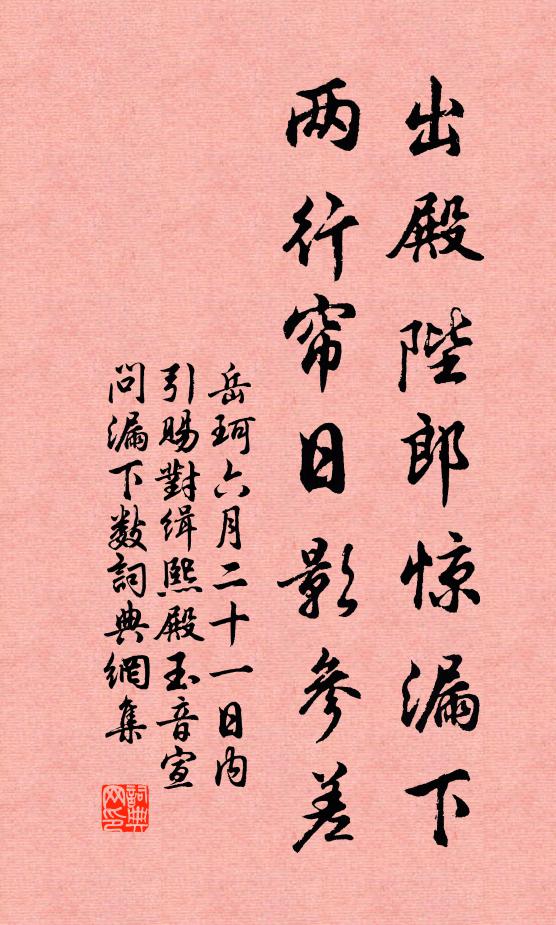 出殿陛郎惊漏下
两行帘日影参差
岳珂六月二十一日内
引赐對缉熙殿玉音宣
問漏下数詞典網集
詞典网印